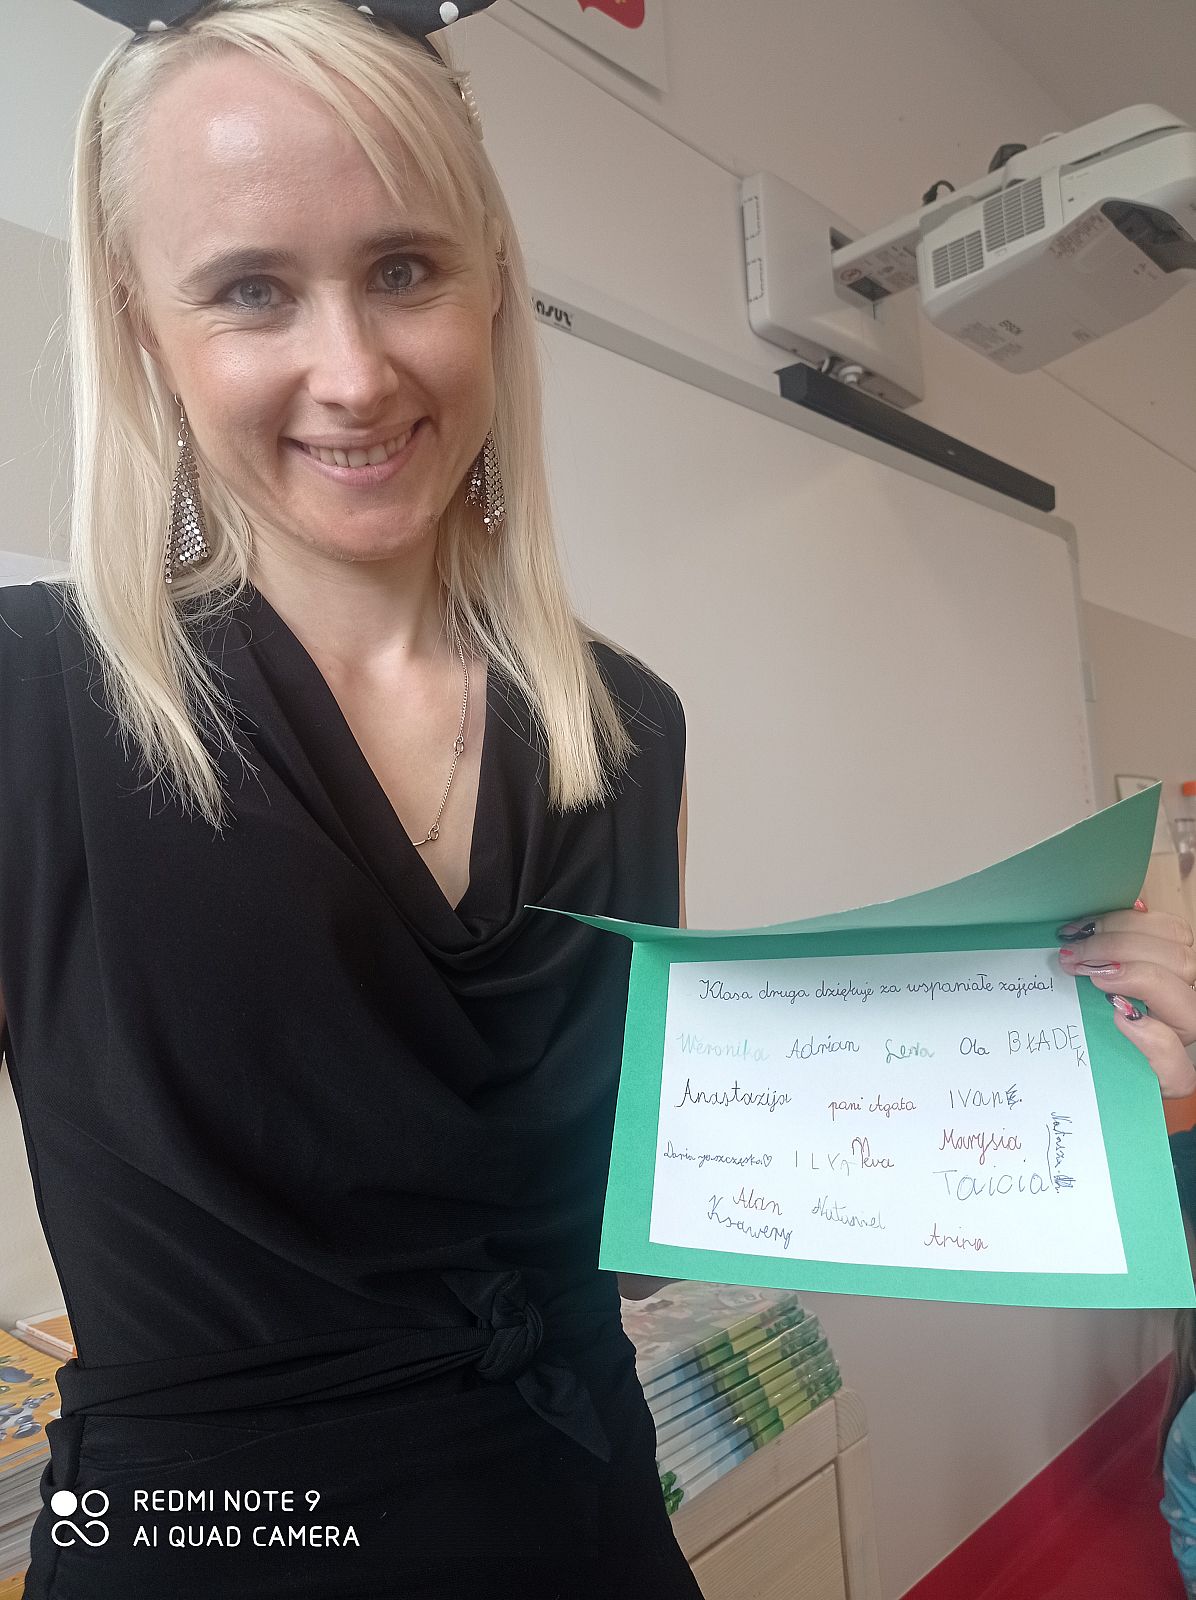 EPSON
Klasa druga dziękuje za wspaniałe zajęcia!
Weronika Adrian Lena Ola BŁADEK
Anastazija pani Agata IVAN
Natasza
Daria ♡ ILYA Marysia
Taicia
Alan Nataniel
Ksawery Arina
REDMI NOTE 9
AI QUAD CAMERA